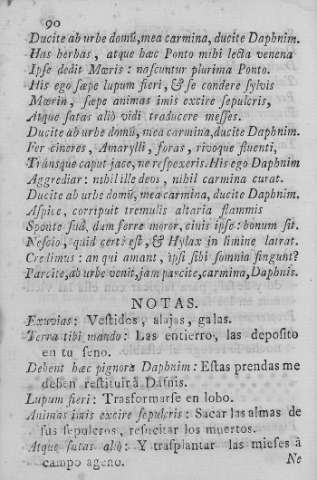 90
Ducite ab urbe domũ, mea carmina, ducite Daphnim.
Has herbas, atque hæc Ponto mihi lecta venena
Ipse dedit Mœris: nascuntur plurima Ponto.
His ego sæpe lupum fieri, & se condere sylvis
Mœrin, sæpe animas imis excire sepulcris,
Atque satas aliò vidi traducere messes.
Ducite ab urbe domũ, mea carmina, ducite Daphnim.
Fer cineres, Amarylli, foras, rivoque fluenti,
Tránsque caput jace, ne respexeris. His ego Daphnim
Aggrediar: nihil ille deos, nihil carmina curat.
Ducite ab urbe domũ, mea carmina, ducite Daphnim.
Aspice, corripuit tremulis altaria flammis
Sponte suâ, dum ferre moror, cinis ipse: bonum sit.
Nescio, quid certè est, & Hylax in limine latrat.
Credimus: an qui amant, ipsi sibi somnia fingunt?
Parcite, ab urbe venit, jam parcite, carmina, Daphnis.
NOTAS.
Exuvias: Vestidos, alajas, galas.
Terra tibi mando: Las entierro, las deposito
en tu seno.
Debent hæc pignora Daphnim: Estas prendas me
deben restituir à Dafnis.
Lupum fieri: Trasformarse en lobo.
Animas imis excire sepulcris: Sacar las almas de
sus sepulcros, resucitar los muertos.
Atque satas aliò: Y trasplantar las mieses à
campo ageno.
Ne